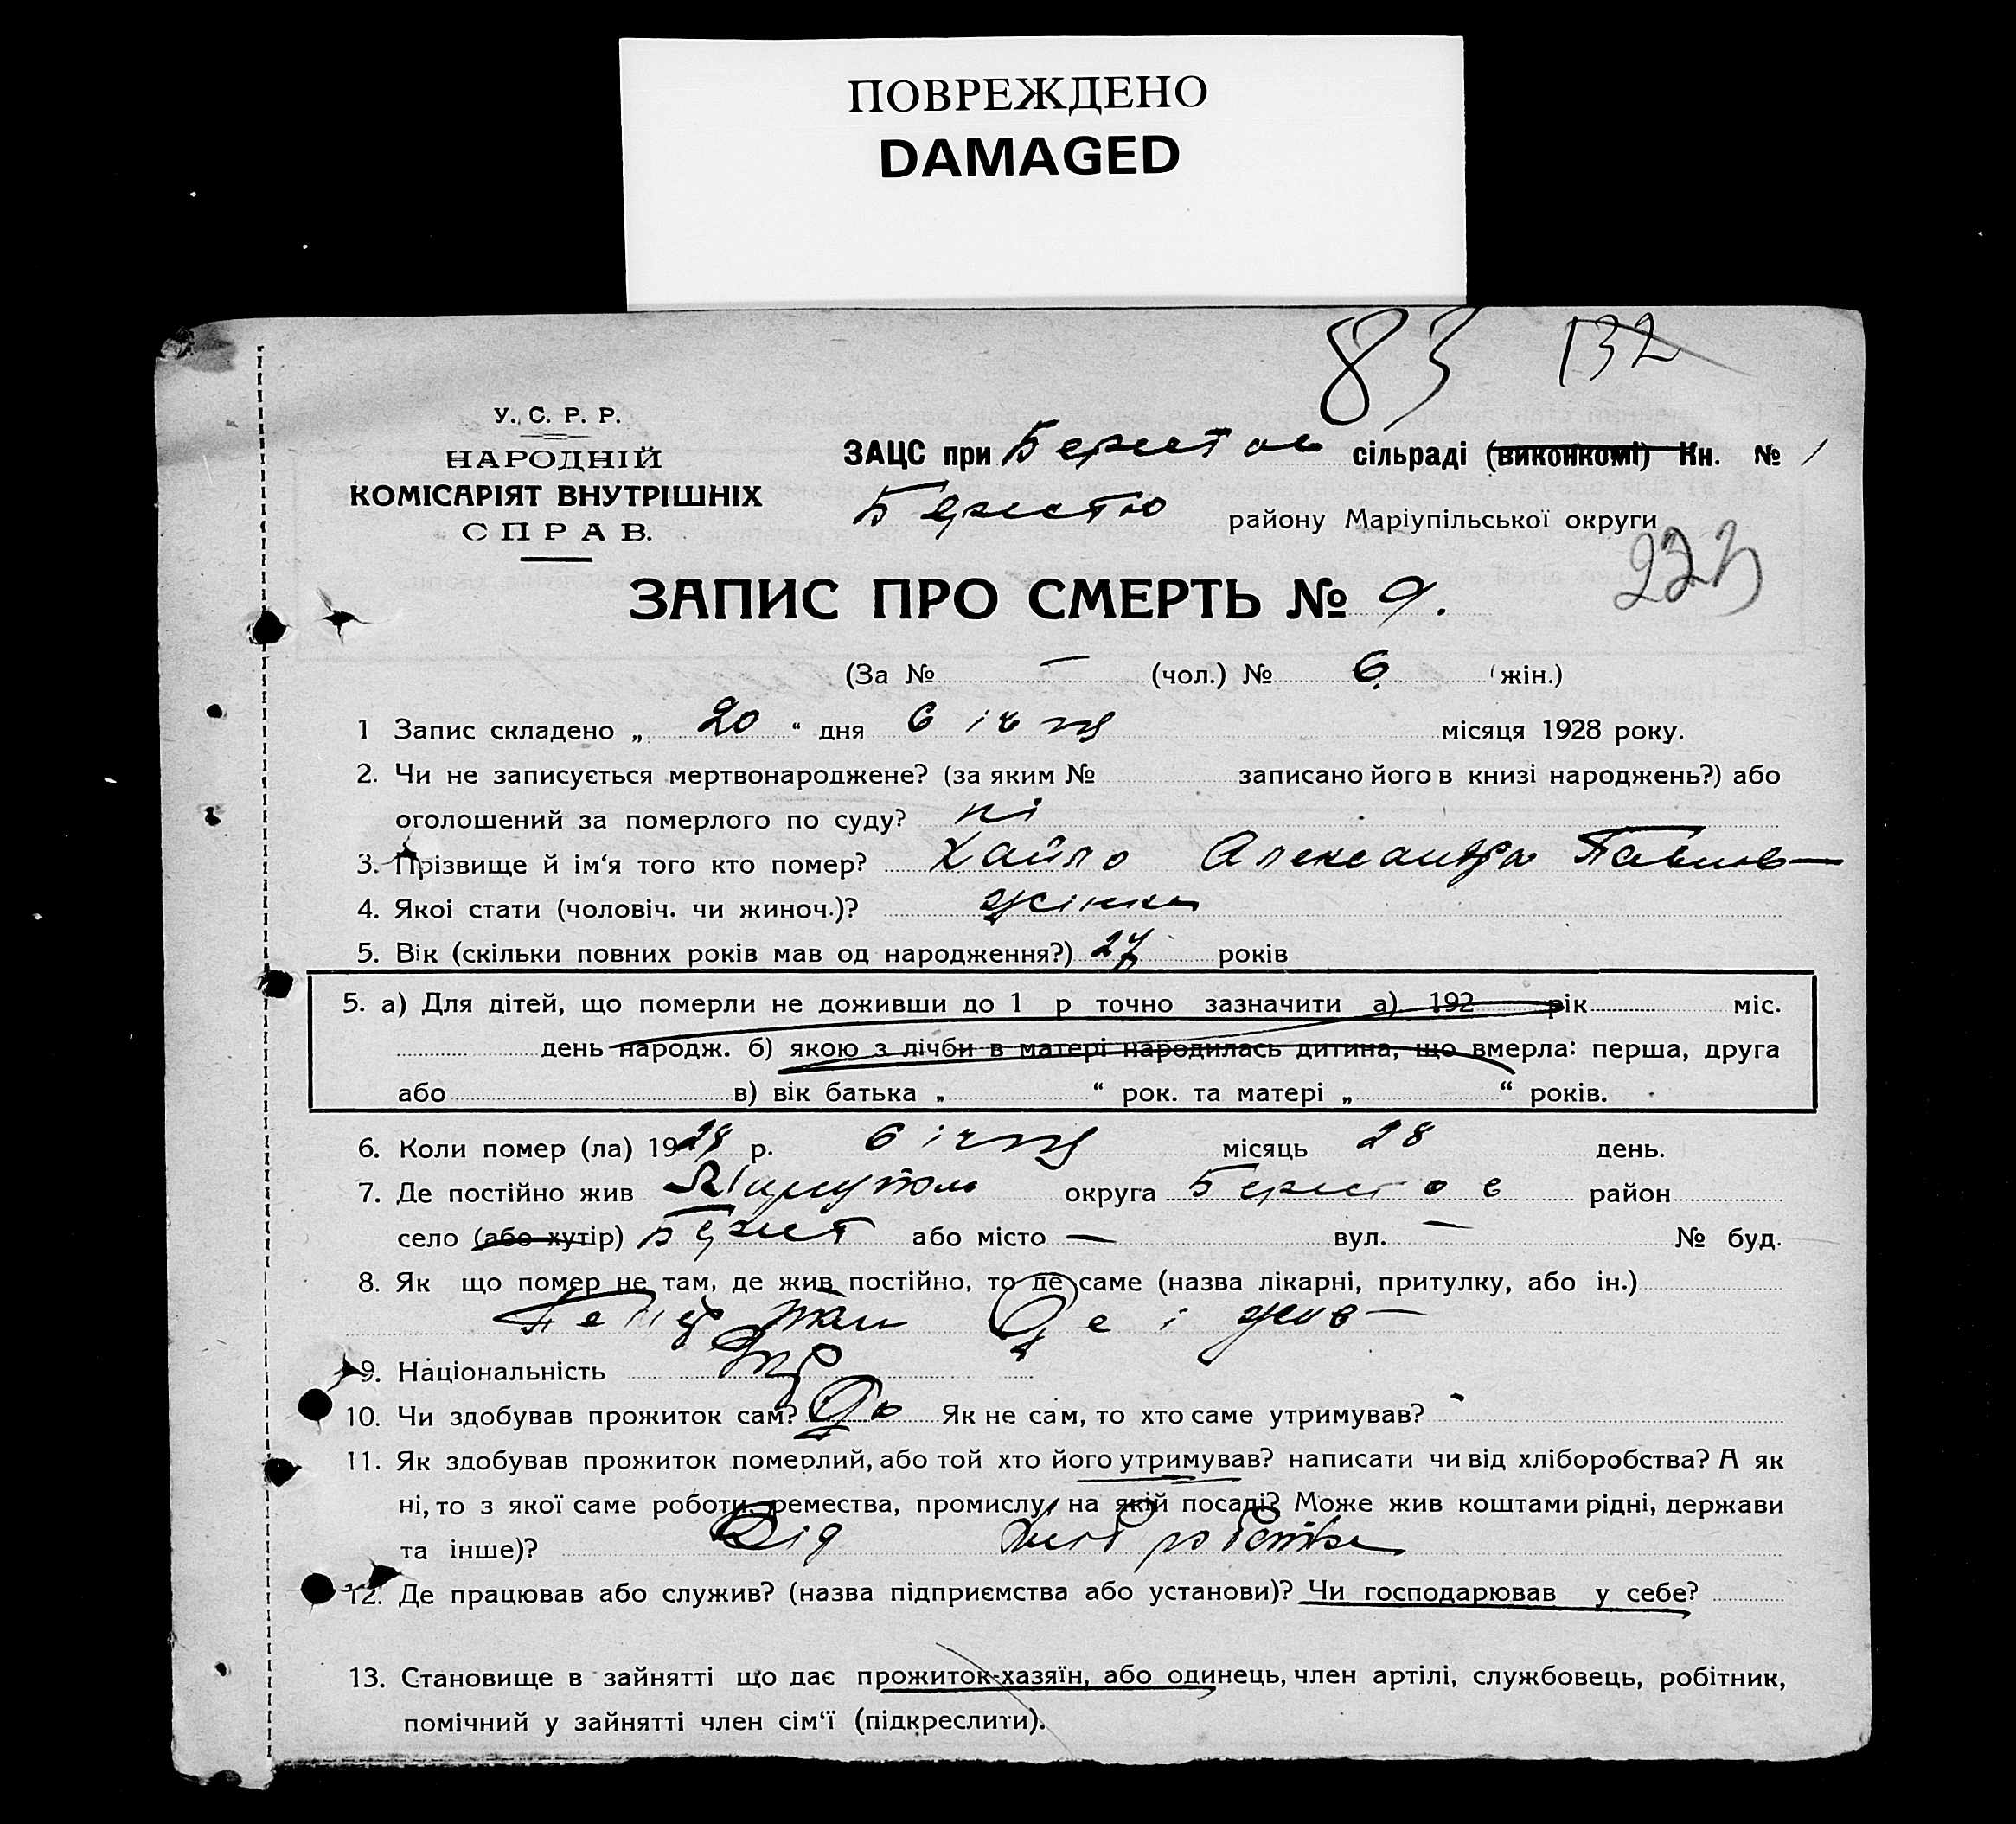 ПОВРЕЖДЕНО
DAMAGED
83 132
У. С. Р. Р.
НАРОДНІЙ
КОМІСАРІЯТ ВНУТРІШНІХ
СПРАВ.
ЗАЦС при Берестов сільраді (виконкомі) Кн. № 1
Берестов району Маріупільської округи
223
ЗАПИС ПРО СМЕРТЬ № 9.
(За № — (чол.) № 6 (жін.)
1 Запис складено „ 20 “ дня січня місяця 1928 року.
2. Чи не записується мертвонароджене? (за яким № записано його в книзі народжень?) або
оголошений за померлого по суду? ні
3. Прізвище й ім‘я того кто помер? Хайло Александра Павлов—
4. Якоі стати (чоловіч. чи жиноч.)? жінка
5. Вік (скільки повних років мав од народження?) 27 років
5. а) Для дітей, що померли не доживши до 1 р точно зазначити а) 192 рік міс.
день народж. б) якою з лічби в матері народилась дитина, що вмерла: перша, друга
або в) вік батька „ “ рок. та матері „ “ років.
6. Коли помер (ла) 1928 р. січня місяць 28 день.
7. Де постійно жив Маріупол округа Берестов район
село (або хутір) Берест або місто — вул. — № буд.
8. Як що помер не там, де жив постійно, то де саме (назва лікарні, притулку, або ін.)
там Де і жив —
9. Національність Укр
10. Чи здобував прожиток сам? Як не сам, то хто саме утримував? -
11. Як здобував прожиток померлий, або той хто його утримував? написати чи від хліборобства? А як
ні, то з якої саме роботи, ремества, промислу, на якій посаді? Може жив коштами рідні, держави
та інше)? Від хліборобства
12. Де працював або служив? (назва підприємства або установи)? Чи господарював у себе?
13. Становище в зайнятті що дає прожиток-хазяїн, або одинець, член артілі, службовець, робітник,
помічний у зайнятті член сім‘ї (підкреслити).